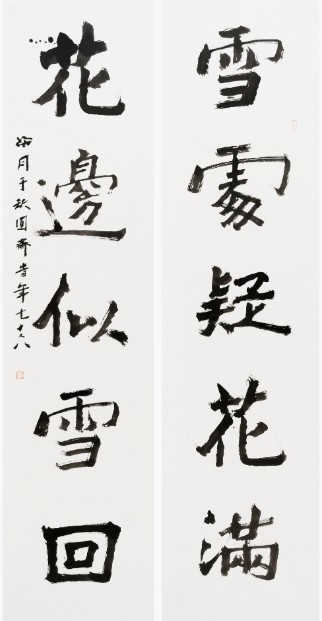 雪處疑花滿
花邊似雪回
月于秋齋年七十八